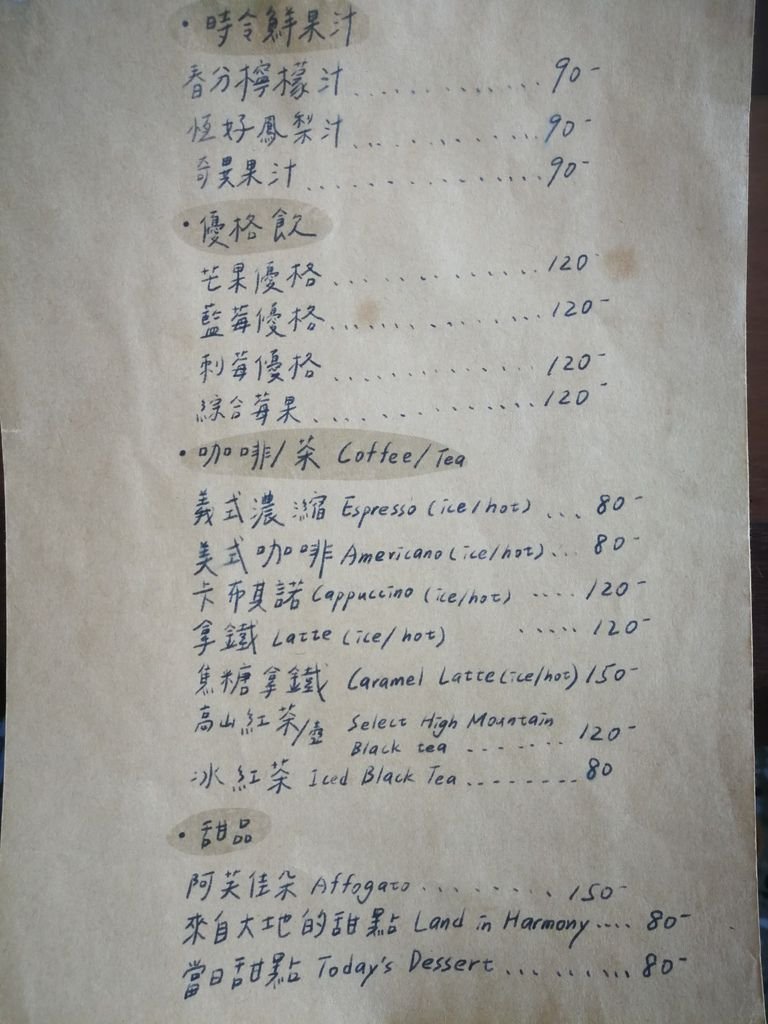 · 時令鮮果汁
春分檸檬汁 .............. 90-
恆好鳳梨汁 .............. 90-
奇異果汁 .............. 90-
· 優格飲
芒果優格 .............. 120-
藍莓優格 .............. 120-
刺莓優格 .............. 120-
綜合莓果 .............. 120-
· 咖啡/茶 Coffee/Tea
義式濃縮 Espresso (ice/hot) ... 80-
美式咖啡 Americano (ice/hot) ... 80-
卡布其諾 Cappuccino (ice/hot) .... 120-
拿鐵 Latte (ice/hot) ..... 120-
焦糖拿鐵 Caramel Latte (ice/hot) 150-
高山紅茶/壺 Select High Mountain
Black tea ....... 120-
冰紅茶 Iced Black Tea ........ 80
· 甜品
阿芙佳朵 Affogato ......... 150-
來自大地的甜點 Land in Harmony .... 80-
當日甜點 Today's Dessert .......... 80-